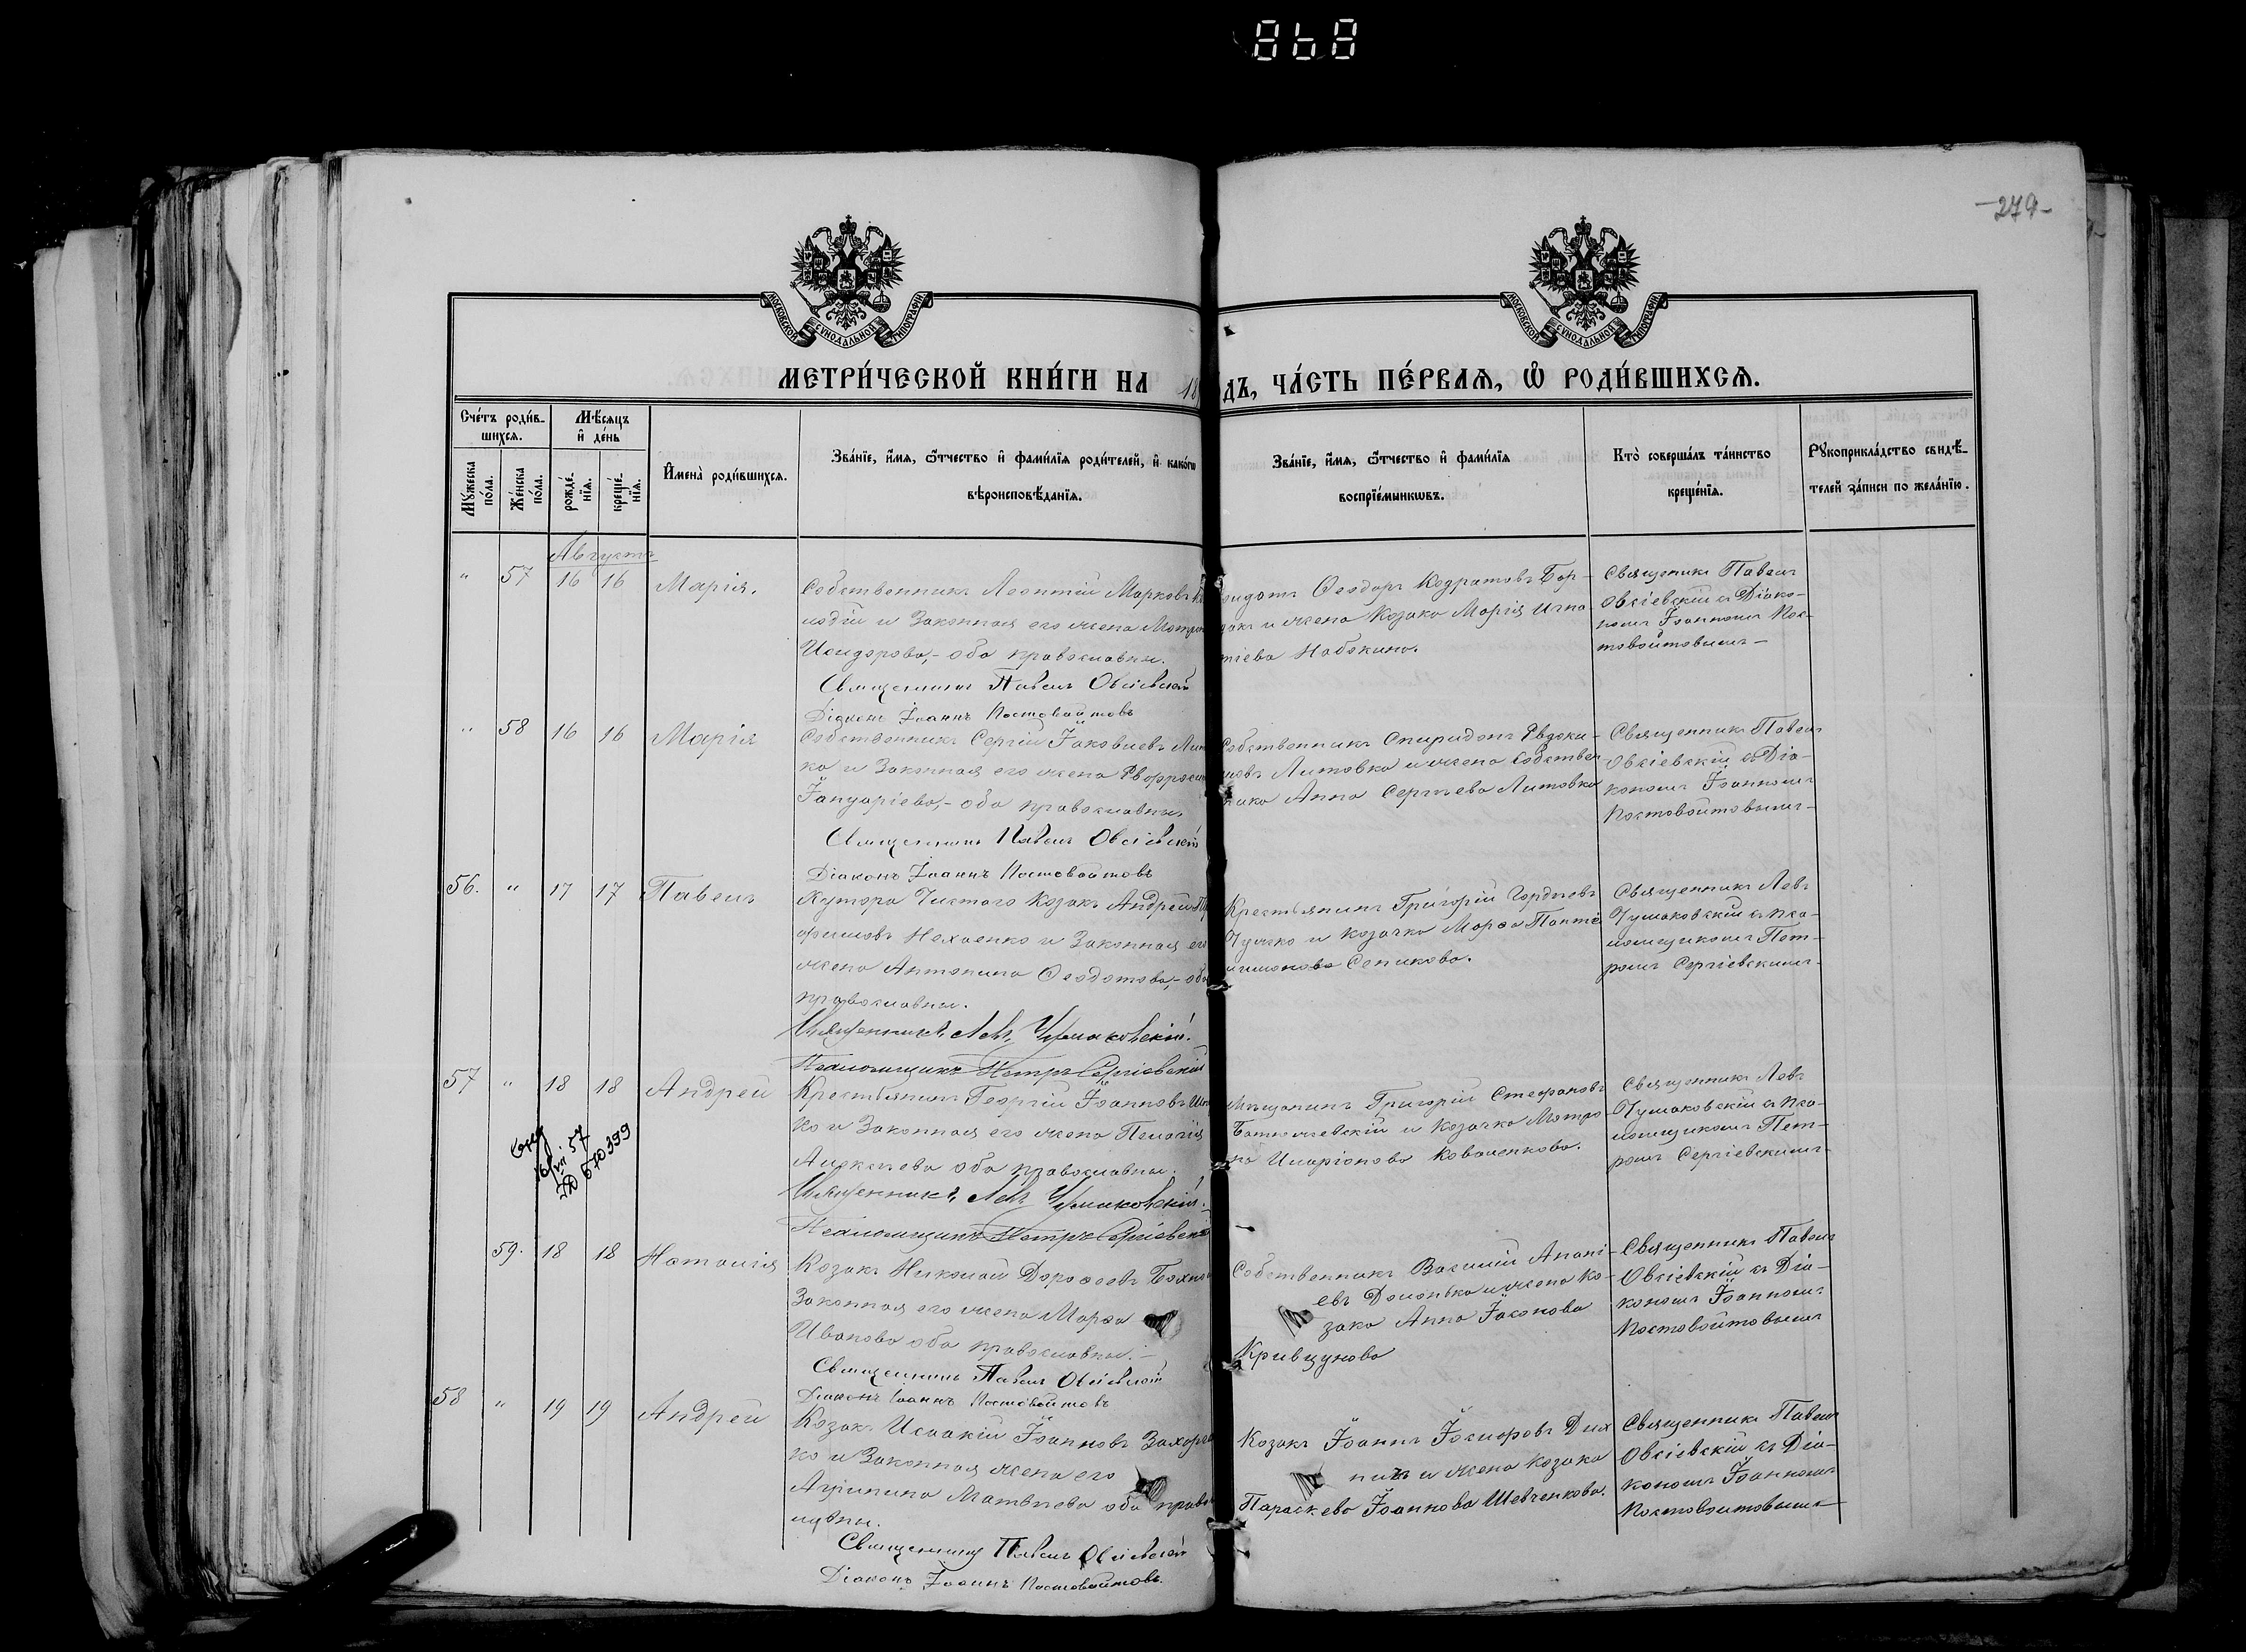 868
-279-
МОСКОВСКОЙ СѴНОДАЛЬНОЙ ТИПОГРАФІИ
МОСКОВСКОЙ СѴНОДАЛЬНОЙ ТИПОГРАФІИ
МЕТРИ́ЧЕСКОЙ КНИ́ГИ НА 18
ДЪ, ЧА́СТЬ ПЕ́РВАѦ, Ѡ҆ РОДИ́ВШИХСѦ.
Сче́тъ роди́в-
шихсѧ.
Мѣ́сѧцъ
и҆ де́нь
Мꙋ́жеска по́ла.
Же́нска по́ла.
рожде́-
нїѧ.
креще́-
нїѧ.
И҆мена̀ роди́вшихсѧ.
Зва́нїе, и҆́мѧ, ѻ҆́тчество и҆ фами́лїѧ роди́телей, и҆ како́гѡ
вѣроисповѣ́данїѧ.
Зва́нїе, и҆́мѧ, ѻ҆́тчество и҆ фами́лїѧ
воспрїе́мникѡвъ.
Кто̀ соверша́лъ та́инство
креще́нїѧ.
Рꙋкоприкла́дство свидѣ́-
телей за́писи по жела́нїю.
Августъ
" 57 16 16 Марія.
Собственникъ Леонтій Марковъ
и Законная его жена
Исидорова,- оба православны.
Священникъ Павелъ Овсіевскій
Діаконъ Іоаннъ Постовойтовъ
Ѳеодоръ Кодратовъ Бор-
и жена Козака Марія Игна
тіева Набокина.
Священникъ Павелъ
Овсіевскій съ Діако-
номъ Іоанномъ Пос-
товойтовымъ-
" 58 16 16 Марія
Собственникъ Сергій Іаковлевъ
ка и Законная его жена
Іануаріева,- оба православны.
Священникъ Павелъ Овсіевскій
Діаконъ Іоаннъ Постовойтовъ
Собственникъ Спиридонъ Евдоки-
мовъ Литовка и жена Собствен
ника Анна Сергѣева Литовка
Священникъ Павелъ
Овсіевскій съ Діа-
кономъ Іоанномъ
Постовойтовымъ-
56. " 17 17 Павелъ
Хутора Чистаго Козакъ Андрей
фимовъ Нехаенко и Законная его
жена Антонина Ѳеодотова,- оба
православны.
Священникъ Левъ Чумаковскій.
Псаломщикъ Петръ Сергіевскій
Крестьянинъ Григорій Гордѣевъ
и козачка Марѳа
Сеникова.
Священникъ Левъ
Чумаковскій съ Пса-
ломщикомъ Пет-
ромъ Сергіевскимъ-
57 " 18 18 Андрей
16/VII 57
670399
Крестьянинъ Георгій Іоанновъ
ко и Законная его жена Пелагія
Алексѣева оба православны.
Священникъ Левъ Чумаковскій.
Псаломщикъ Петръ Сергіевскій
Мѣщанинъ Григорій Стефановъ
и Козачка Матро-
на Иларіонова Коваленкова.
Священникъ Левъ
Чумаковскій съ Пса-
ломщикомъ Пет-
ромъ Сергіевскимъ-
59. 18 18 Наталія
Козакъ Николай Дороѳеевъ
Законная его жена Марѳа
Иванова оба православны.-
Священникъ Павелъ Овсіевскій
Діаконъ Іоаннъ Постовойтовъ
Собственникъ Василій Анані-
евъ и жена Ко-
зака Анна
Кривцунова
Священникъ Павелъ
Овсіевскій съ Діа-
кономъ Іоанномъ
Постовойтовымъ
58 " 19 19 Андрей
Козакъ Исаакій Іоанновъ
ко и Законная жена его
Агрипина Матвѣева оба право
славны.
Священникъ Павелъ Овсіевскій
Діаконъ Іоаннъ Постовойтовъ.
Козакъ Іоаннъ
и жена козака
Параскева Іоаннова Шевченкова.
Священникъ Павелъ
Овсіевскій съ Діа-
кономъ Іоанномъ
Постовойтовымъ